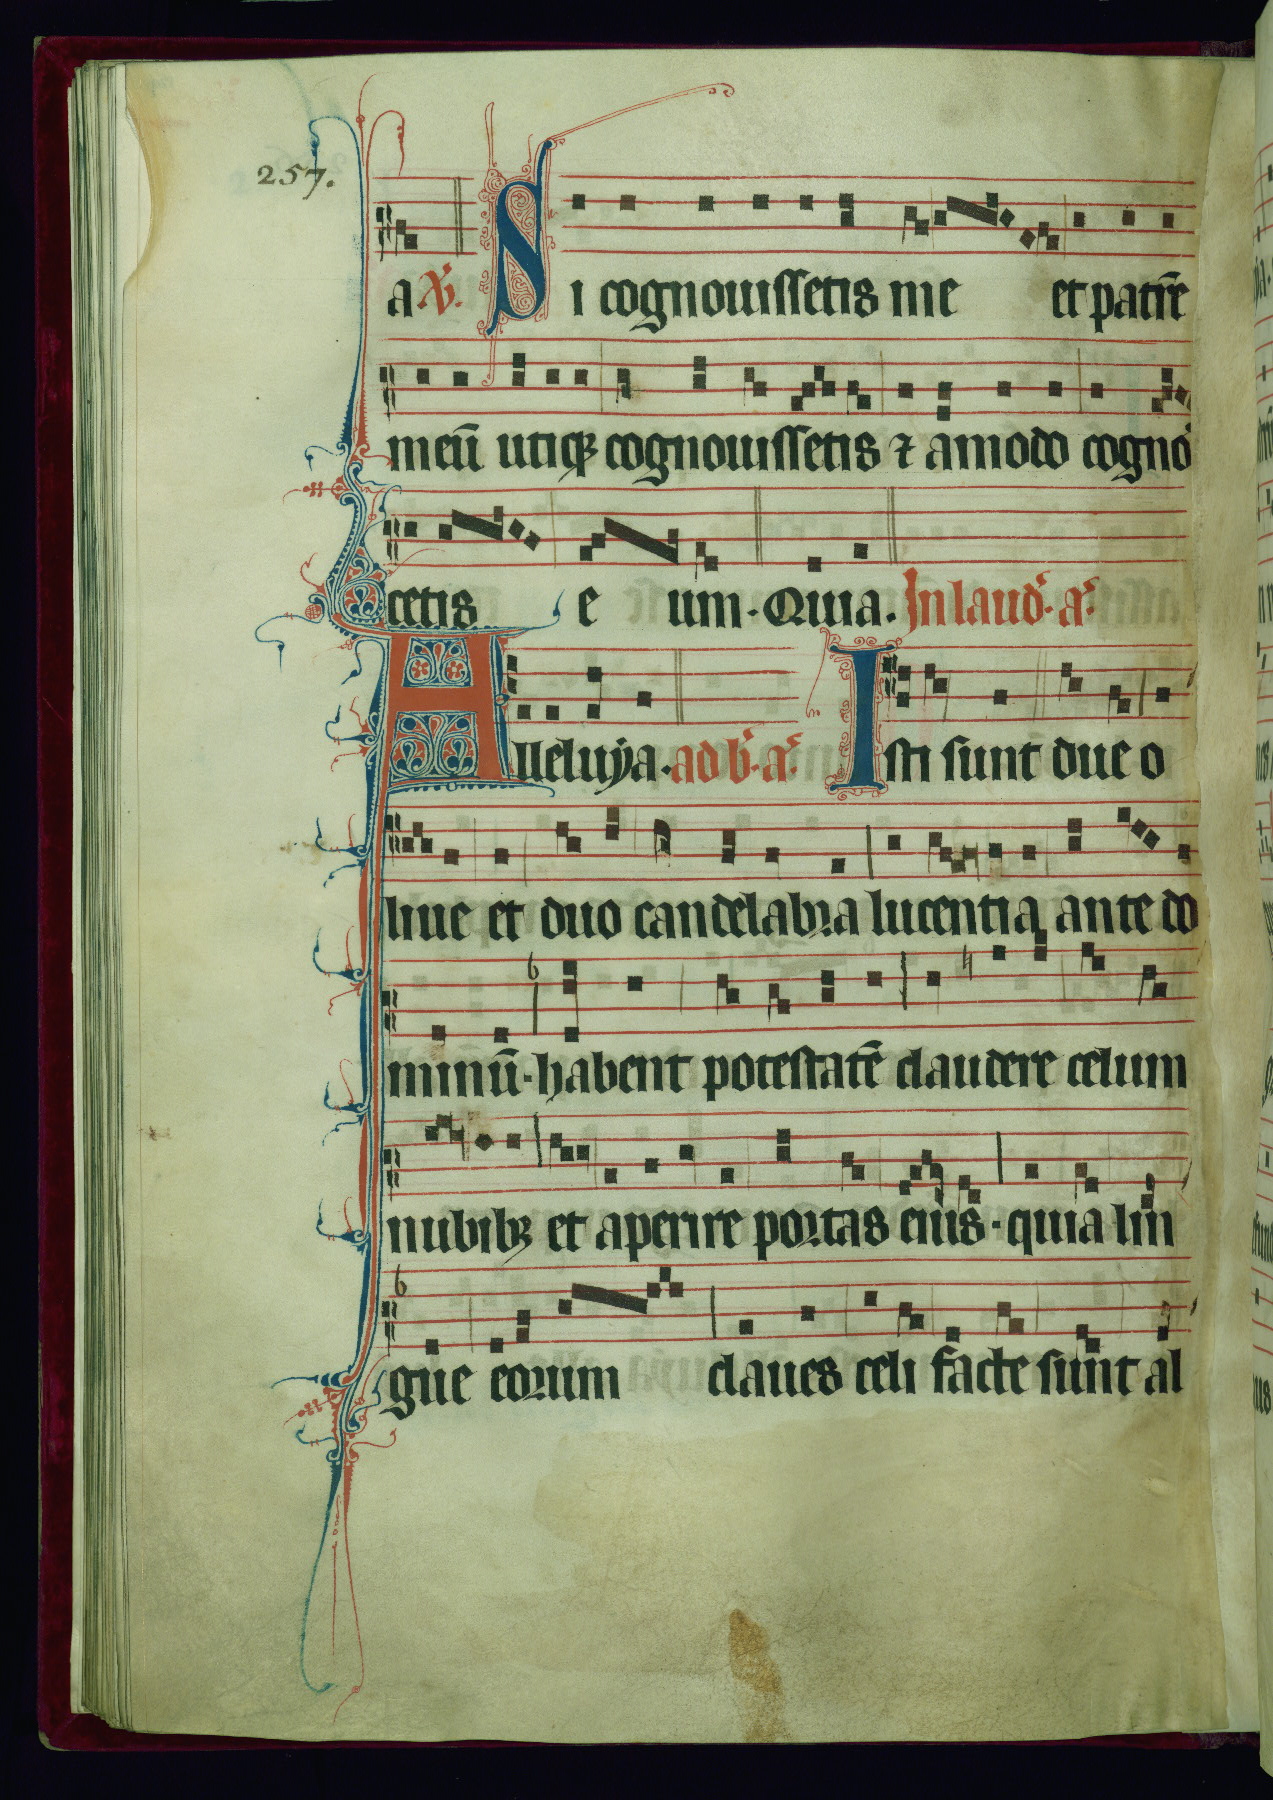 257.
a V. Si cognouissetis me et patrē
meū utiqꝫ cognouissetis ⁊ amodo cogno
cetis eum. Quia. In laud. a.
Alleluya. ad b. a. Isti sunt due o
liue et duo candelabra lucentia ante do
minū. habent potestatē claudere celum
nubibꝫ et aperire portas eius. quia lin
gue eorum claues celi facte sunt al